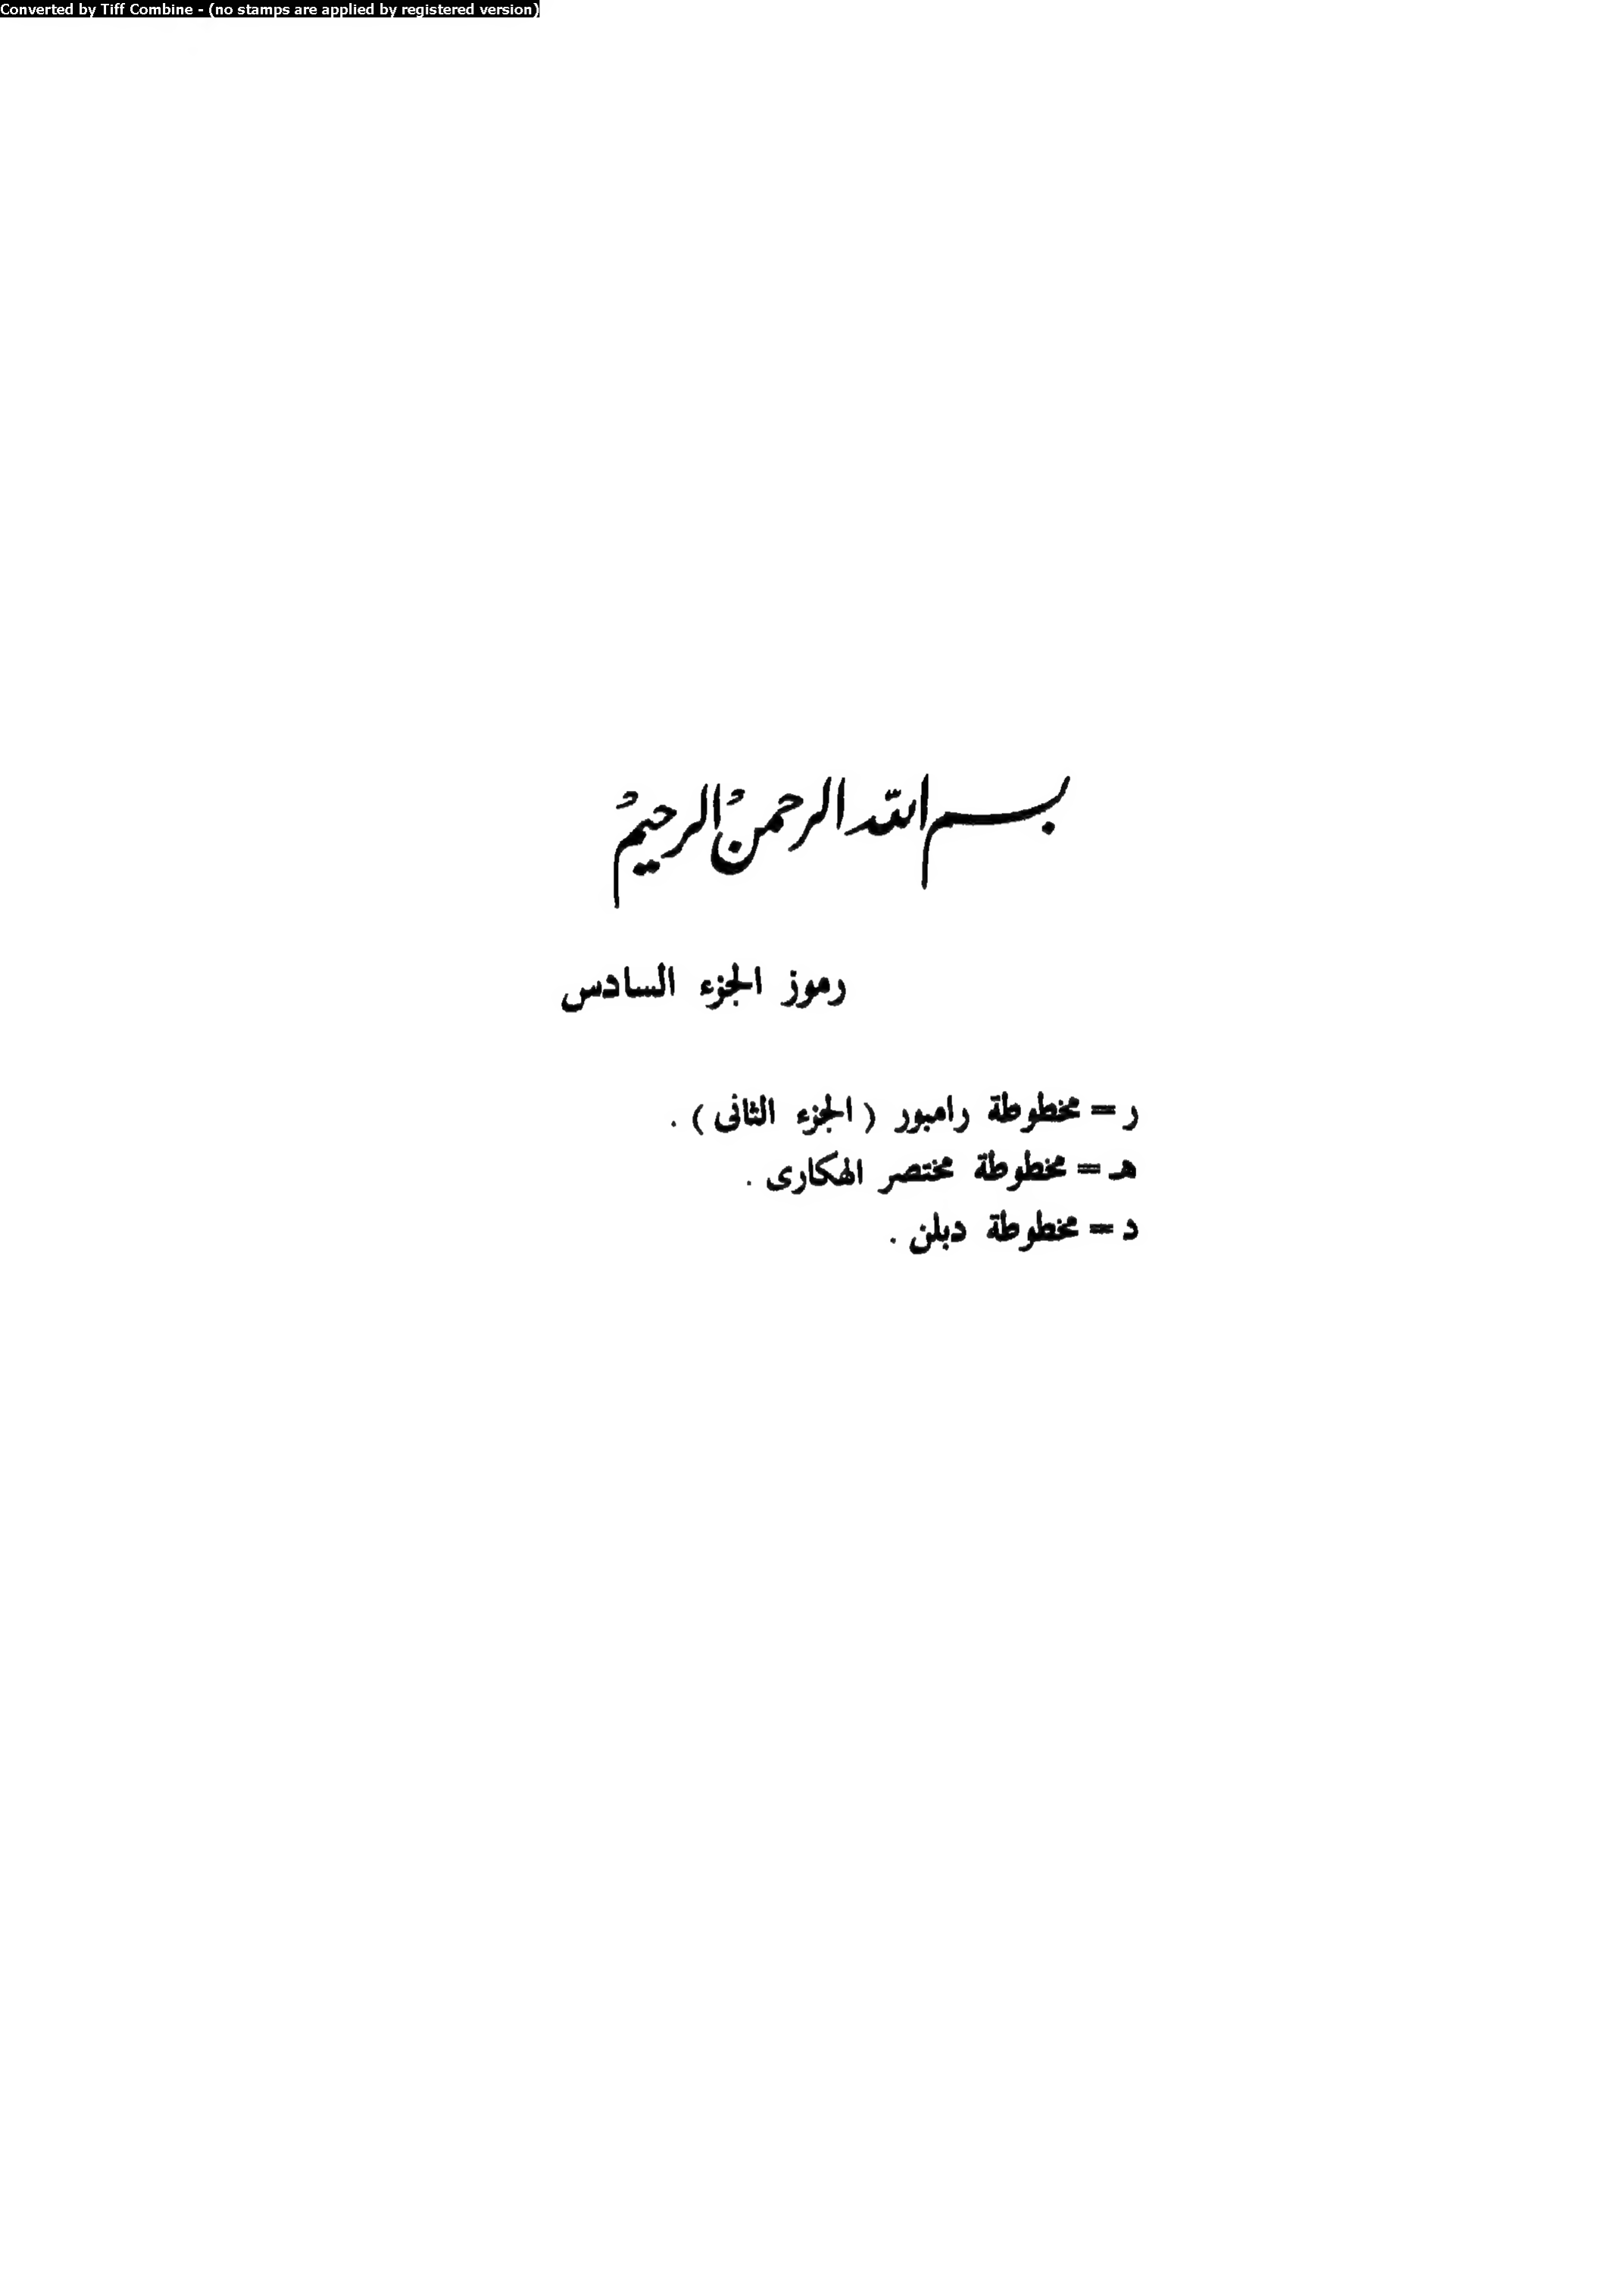 Converted by Tiff Combine - (no stamps are applied by registered version)
بسم الله الرحمن الرحيم
رموز الجزء السادس
ر = مخطوطة رامبور ( الجزء الثانى ) .
هـ = مخطوطة مختصر الهكارى .
د = مخطوطة دبلن .